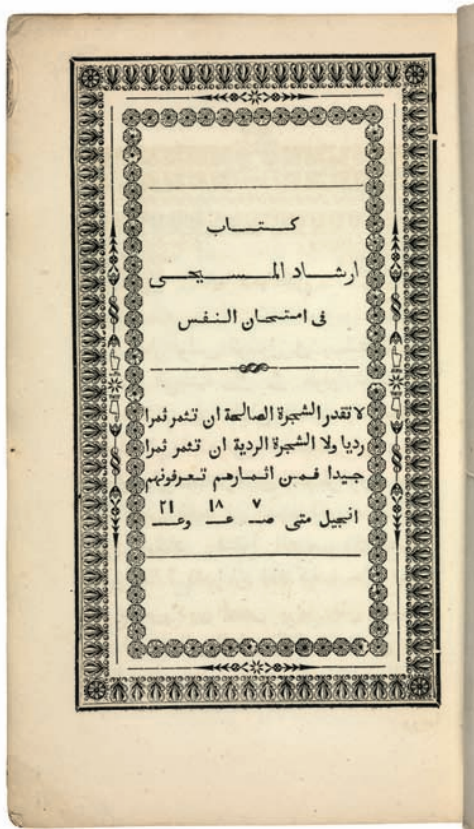 كتاب
ارشاد المسيحى
فى امتحان النفس
لا تقدر الشجرة الصالحة ان تثمر ثمرا
رديا ولا الشجرة الردية ان تثمر ثمرا
جيدا فمن اثمارهم تعرفونهم
انجيل متى صـ ٧ عـ ١٨ وعـ ٢١